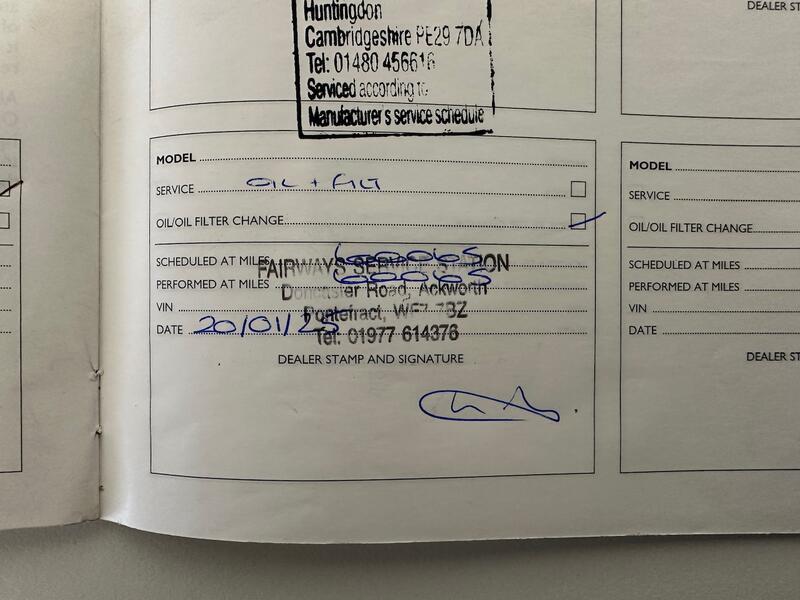 Huntingdon
Cambridgeshire PE29 7DA
Tel: 01480 456616
Serviced according to
Manufacturer's service schedule
DEALER ST
MODEL
SERVICE OIL + FILT
OIL/OIL FILTER CHANGE
SCHEDULED AT MILES 60065
PERFORMED AT MILES 60065
VIN
DATE 20/01/25
FAIRWAYS SERVICE STATION
Doncaster Road, Ackworth
Pontefract, WF7 7BZ
Tel: 01977 614376
DEALER STAMP AND SIGNATURE
MODEL
SERVICE
OIL/OIL FILTER CHANGE
SCHEDULED AT MILES
PERFORMED AT MILES
VIN
DATE
DEALER ST